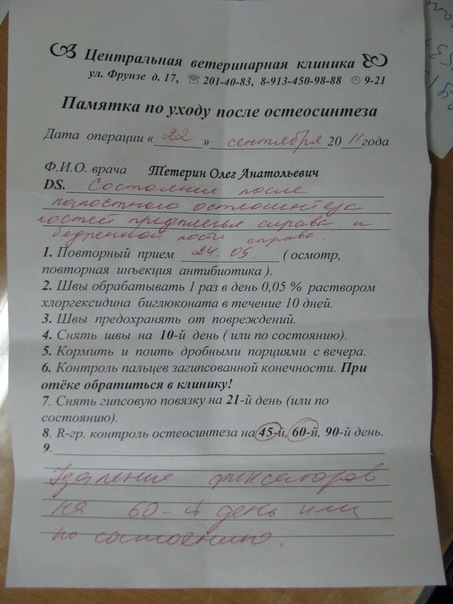 Центральная ветеринарная клиника
ул. Фрунзе д. 17, ☏ 201-40-83, 8-913-450-98-88 🕘 9-21
Памятка по уходу после остеосинтеза
Дата операции « 22 » сентября 20 11 года
Ф.И.О. врача Тетерин Олег Анатольевич
DS. Состояние после
накостного остеосинтеза
костей предплечья справа и
бедренной кости справа.
1. Повторный прием 24.09. ( осмотр,
повторная инъекция антибиотика ).
2. Швы обрабатывать 1 раз в день 0,05 % раствором
хлоргексидина биглюконата в течение 10 дней.
3. Швы предохранять от повреждений.
4. Снять швы на 10-й день ( или по состоянию).
5. Кормить и поить дробными порциями с вечера.
6. Контроль пальцев загипсованной конечности. При
отёке обратиться в клинику!
7. Снять гипсовую повязку на 21-й день (или по
состоянию).
8. R-гр. контроль остеосинтеза на 45-й, 60-й, 90-й день.
9.
Удаление фиксаторов
на 60-й день или
по состоянию.